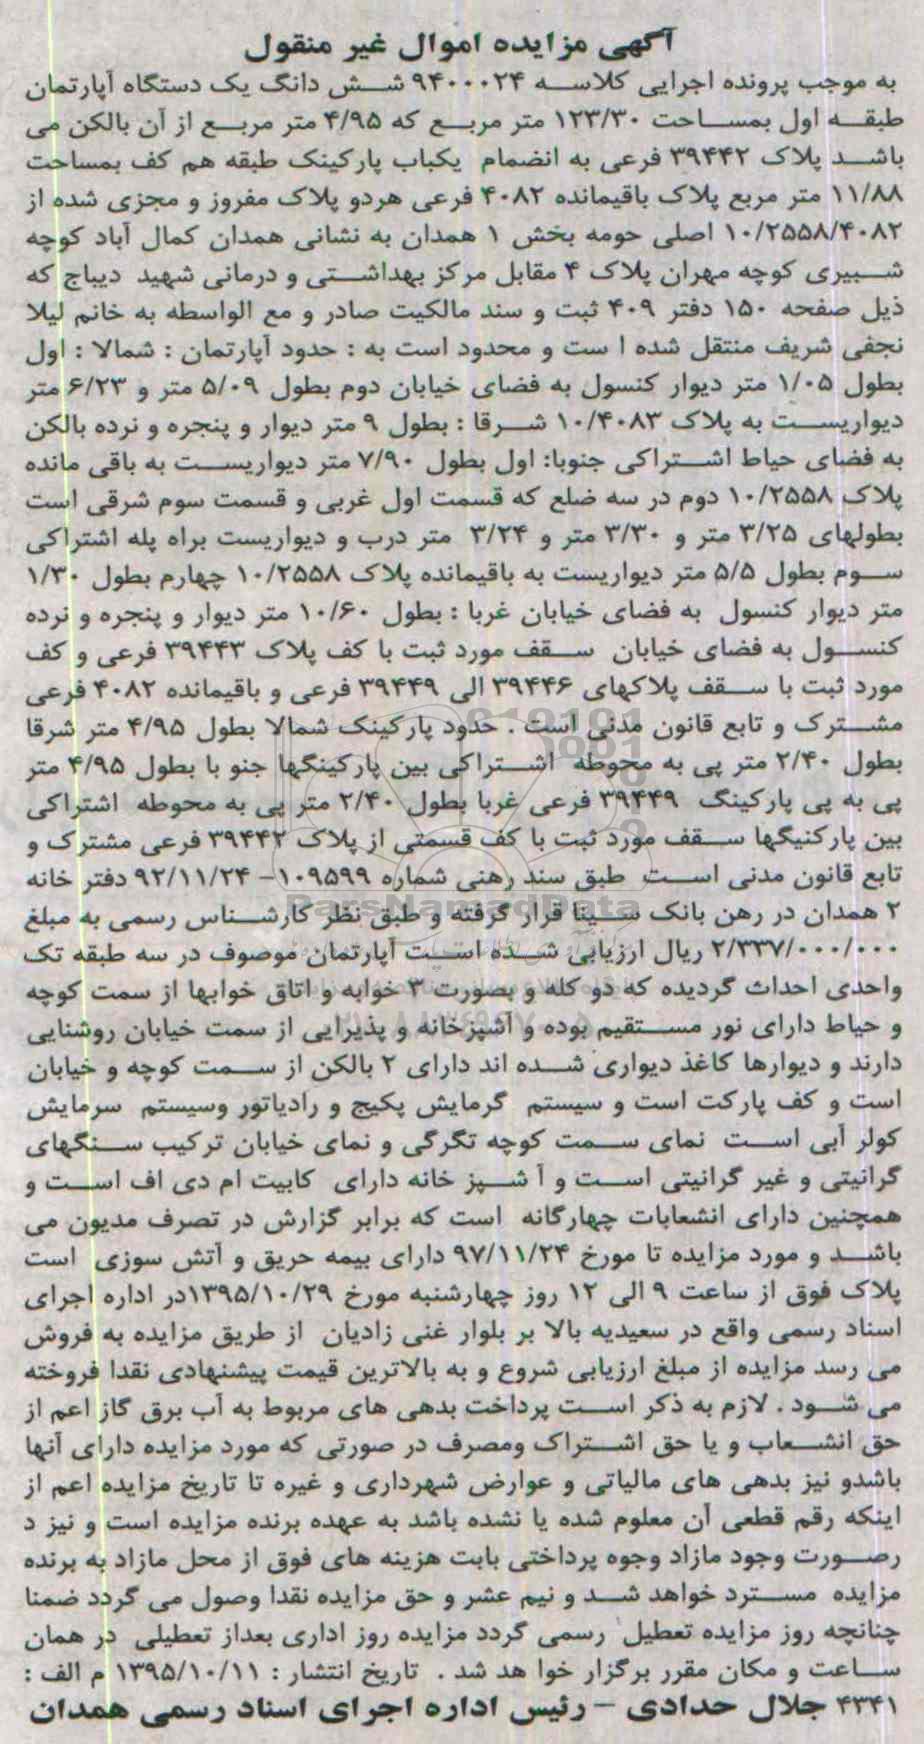 آگهی مزایده اموال غیر منقول
به موجب پرونده اجرایی کلاسه ۹۴۰۰۰۲۴ شش دانگ یک دستگاه آپارتمان
طبقه اول بمساحت ۱۲۳/۳۰ متر مربع که ۴/۹۵ متر مربع از آن بالکن می
باشد پلاک ۳۹۴۴۲ فرعی به انضمام یکباب پارکینک طبقه هم کف بمساحت
۱۱/۸۸ متر مربع پلاک باقیمانده ۴۰۸۲ فرعی هردو پلاک مفروز و مجزی شده از
۱۰/۲۵۵۸/۴۰۸۲ اصلی حومه بخش ۱ همدان به نشانی همدان کمال آباد کوچه
شبیری کوچه مهران پلاک ۴ مقابل مرکز بهداشتی و درمانی شهید دیباج که
ذیل صفحه ۱۵۰ دفتر ۴۰۹ ثبت و سند مالکیت صادر و مع الواسطه به خانم لیلا
نجفی شریف منتقل شده ا ست و محدود است به : حدود آپارتمان : شمالا : اول
بطول ۱/۰۵ متر دیوار کنسول به فضای خیابان دوم بطول ۵/۰۹ متر و ۶/۲۳ متر
دیواریست به پلاک ۱۰/۴۰۸۳ شرقا : بطول ۹ متر دیوار و پنجره و نرده بالکن
به فضای حیاط اشتراکی جنوبا: اول بطول ۷/۹۰ متر دیواریست به باقی مانده
پلاک ۱۰/۲۵۵۸ دوم در سه ضلع که قسمت اول غربی و قسمت سوم شرقی است
بطولهای ۳/۲۵ متر و ۳/۳۰ متر و ۳/۲۴ متر درب و دیواریست براه پله اشتراکی
سوم بطول ۵/۵ متر دیواریست به باقیمانده پلاک ۱۰/۲۵۵۸ چهارم بطول ۱/۳۰
متر دیوار کنسول به فضای خیابان غربا : بطول ۱۰/۶۰ متر دیوار و پنجره و نرده
کنسول به فضای خیابان سقف مورد ثبت با کف پلاک ۳۹۴۴۳ فرعی و کف
مورد ثبت با سقف پلاکهای ۳۹۴۴۶ الی ۳۹۴۴۹ فرعی و باقیمانده ۴۰۸۲ فرعی
مشترک و تابع قانون مدنی است . حدود پارکینک شمالا بطول ۴/۹۵ متر شرقا
بطول ۲/۴۰ متر پی به محوطه اشتراکی بین پارکینگها جنو با بطول ۴/۹۵ متر
پی به پی پارکینگ ۳۹۴۴۹ فرعی غربا بطول ۲/۴۰ متر پی به محوطه اشتراکی
بین پارکنیگها سقف مورد ثبت با کف قسمتی از پلاک ۳۹۴۴۲ فرعی مشترک و
تابع قانون مدنی است طبق سند رهنی شماره ۱۰۹۵۹۹- ۹۲/۱۱/۲۴ دفتر خانه
۲ همدان در رهن بانک سینا قرار گرفته و طبق نظر کارشناس رسمی به مبلغ
۲/۳۳۷/۰۰۰/۰۰۰ ریال ارزیابی شده است آپارتمان موصوف در سه طبقه تک
واحدی احداث گردیده که دو کله و بصورت ۳ خوابه و اتاق خوابها از سمت کوچه
و حیاط دارای نور مستقیم بوده و آشپزخانه و پذیرایی از سمت خیابان روشنایی
دارند و دیوارها کاغذ دیواری شده اند دارای ۲ بالکن از سمت کوچه و خیابان
است و کف پارکت است و سیستم گرمایش پکیج و رادیاتور وسیستم سرمایش
کولر آبی است نمای سمت کوچه تگرگی و نمای خیابان ترکیب سنگهای
گرانیتی و غیر گرانیتی است و آ شپز خانه دارای کابیت ام دی اف است و
همچنین دارای انشعابات چهارگانه است که برابر گزارش در تصرف مدیون می
باشد و مورد مزایده تا مورخ ۹۷/۱۱/۲۴ دارای بیمه حریق و آتش سوزی است
پلاک فوق از ساعت ۹ الی ۱۲ روز چهارشنبه مورخ ۱۳۹۵/۱۰/۲۹در اداره اجرای
اسناد رسمی واقع در سعیدیه بالا بر بلوار غنی زادیان از طریق مزایده به فروش
می رسد مزایده از مبلغ ارزیابی شروع و به بالاترین قیمت پیشنهادی نقدا فروخته
می شود . لازم به ذکر است پرداخت بدهی های مربوط به آب برق گاز اعم از
حق انشعاب و یا حق اشتراک ومصرف در صورتی که مورد مزایده دارای آنها
باشدو نیز بدهی های مالیاتی و عوارض شهرداری و غیره تا تاریخ مزایده اعم از
اینکه رقم قطعی آن معلوم شده یا نشده باشد به عهده برنده مزایده است و نیز د
رصورت وجود مازاد وجوه پرداختی بابت هزینه های فوق از محل مازاد به برنده
مزایده مسترد خواهد شد و نیم عشر و حق مزایده نقدا وصول می گردد ضمنا
چنانچه روز مزایده تعطیل رسمی گردد مزایده روز اداری بعداز تعطیلی در همان
ساعت و مکان مقرر برگزار خوا هد شد . تاریخ انتشار : ۱۳۹۵/۱۰/۱۱ م الف :
۴۳۴۱ جلال حدادی - رئیس اداره اجرای اسناد رسمی همدان
ParsNamadData